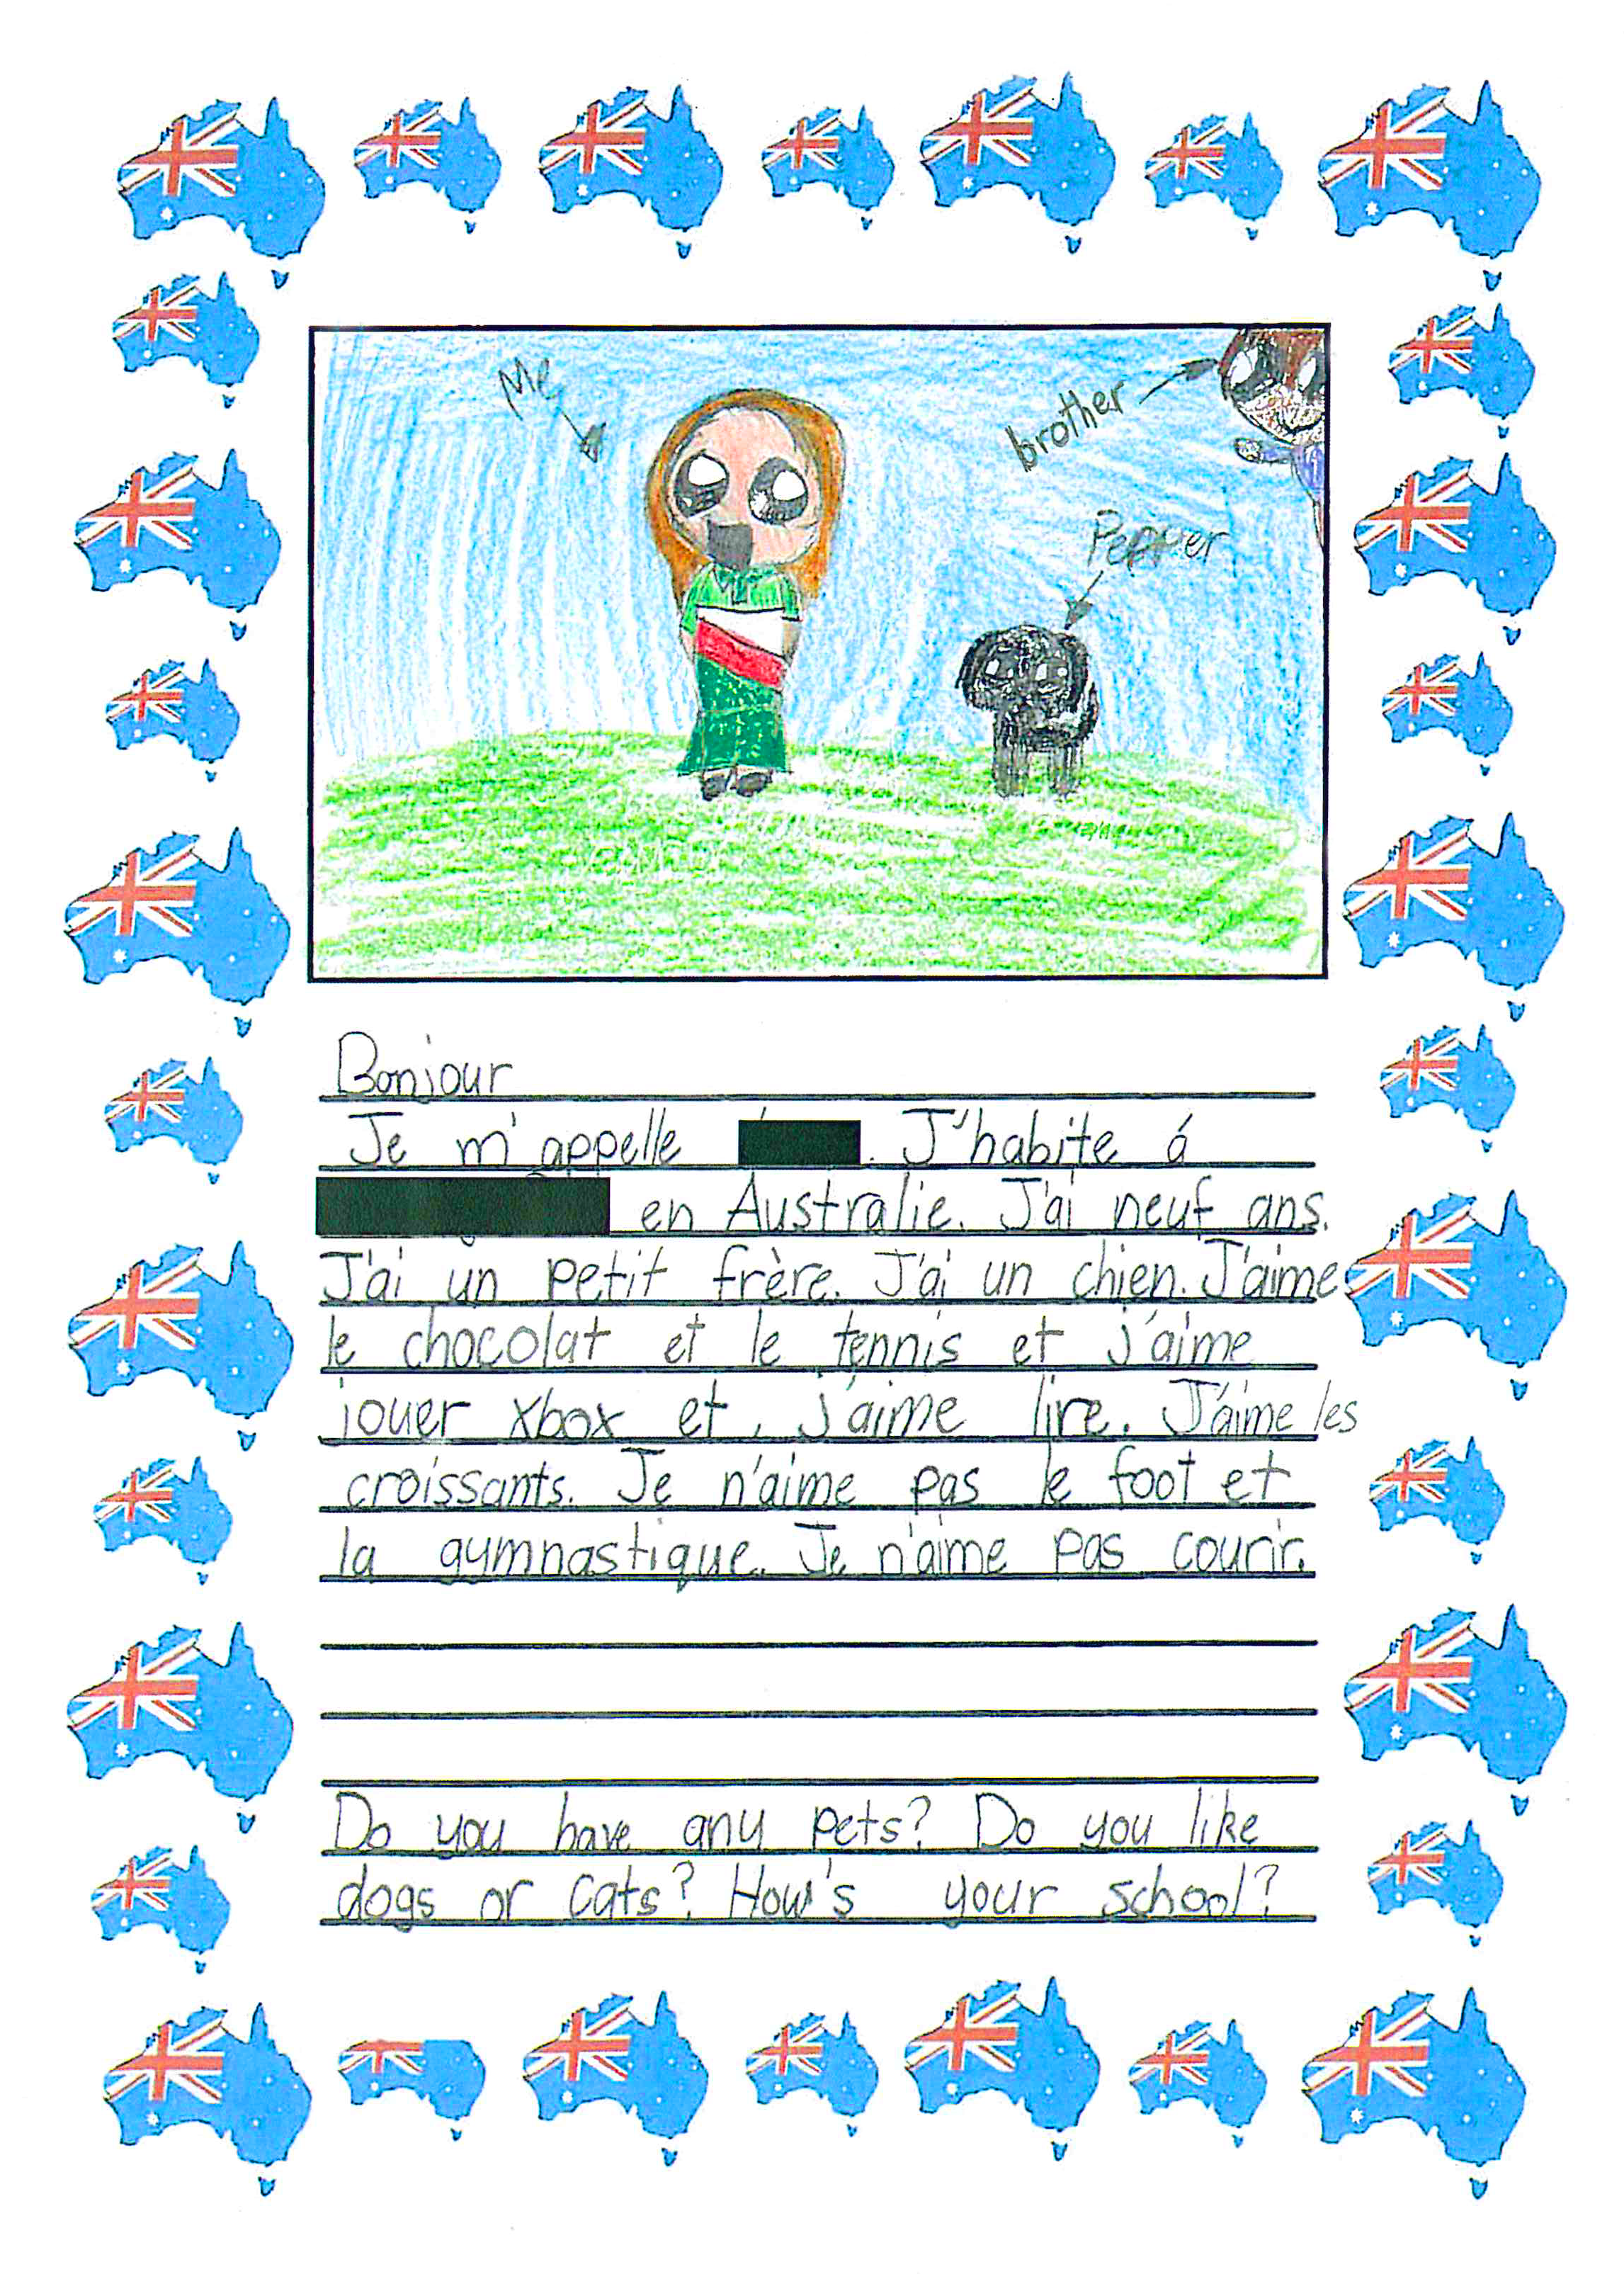 Me
brother
Pepper
Bonjour
Je m'appelle . J'habite á
en Australie. J'ai neuf ans.
J'ai un petit frère. J'ai un chien. J'aime
le chocolat et le tennis et j'aime
jouer xbox et, j'aime lire. J'aime les
croissants. Je n'aime pas le foot et
la gymnastique. Je n'aime pas courir.
Do you have any pets? Do you like
dogs or cats? How's your school?